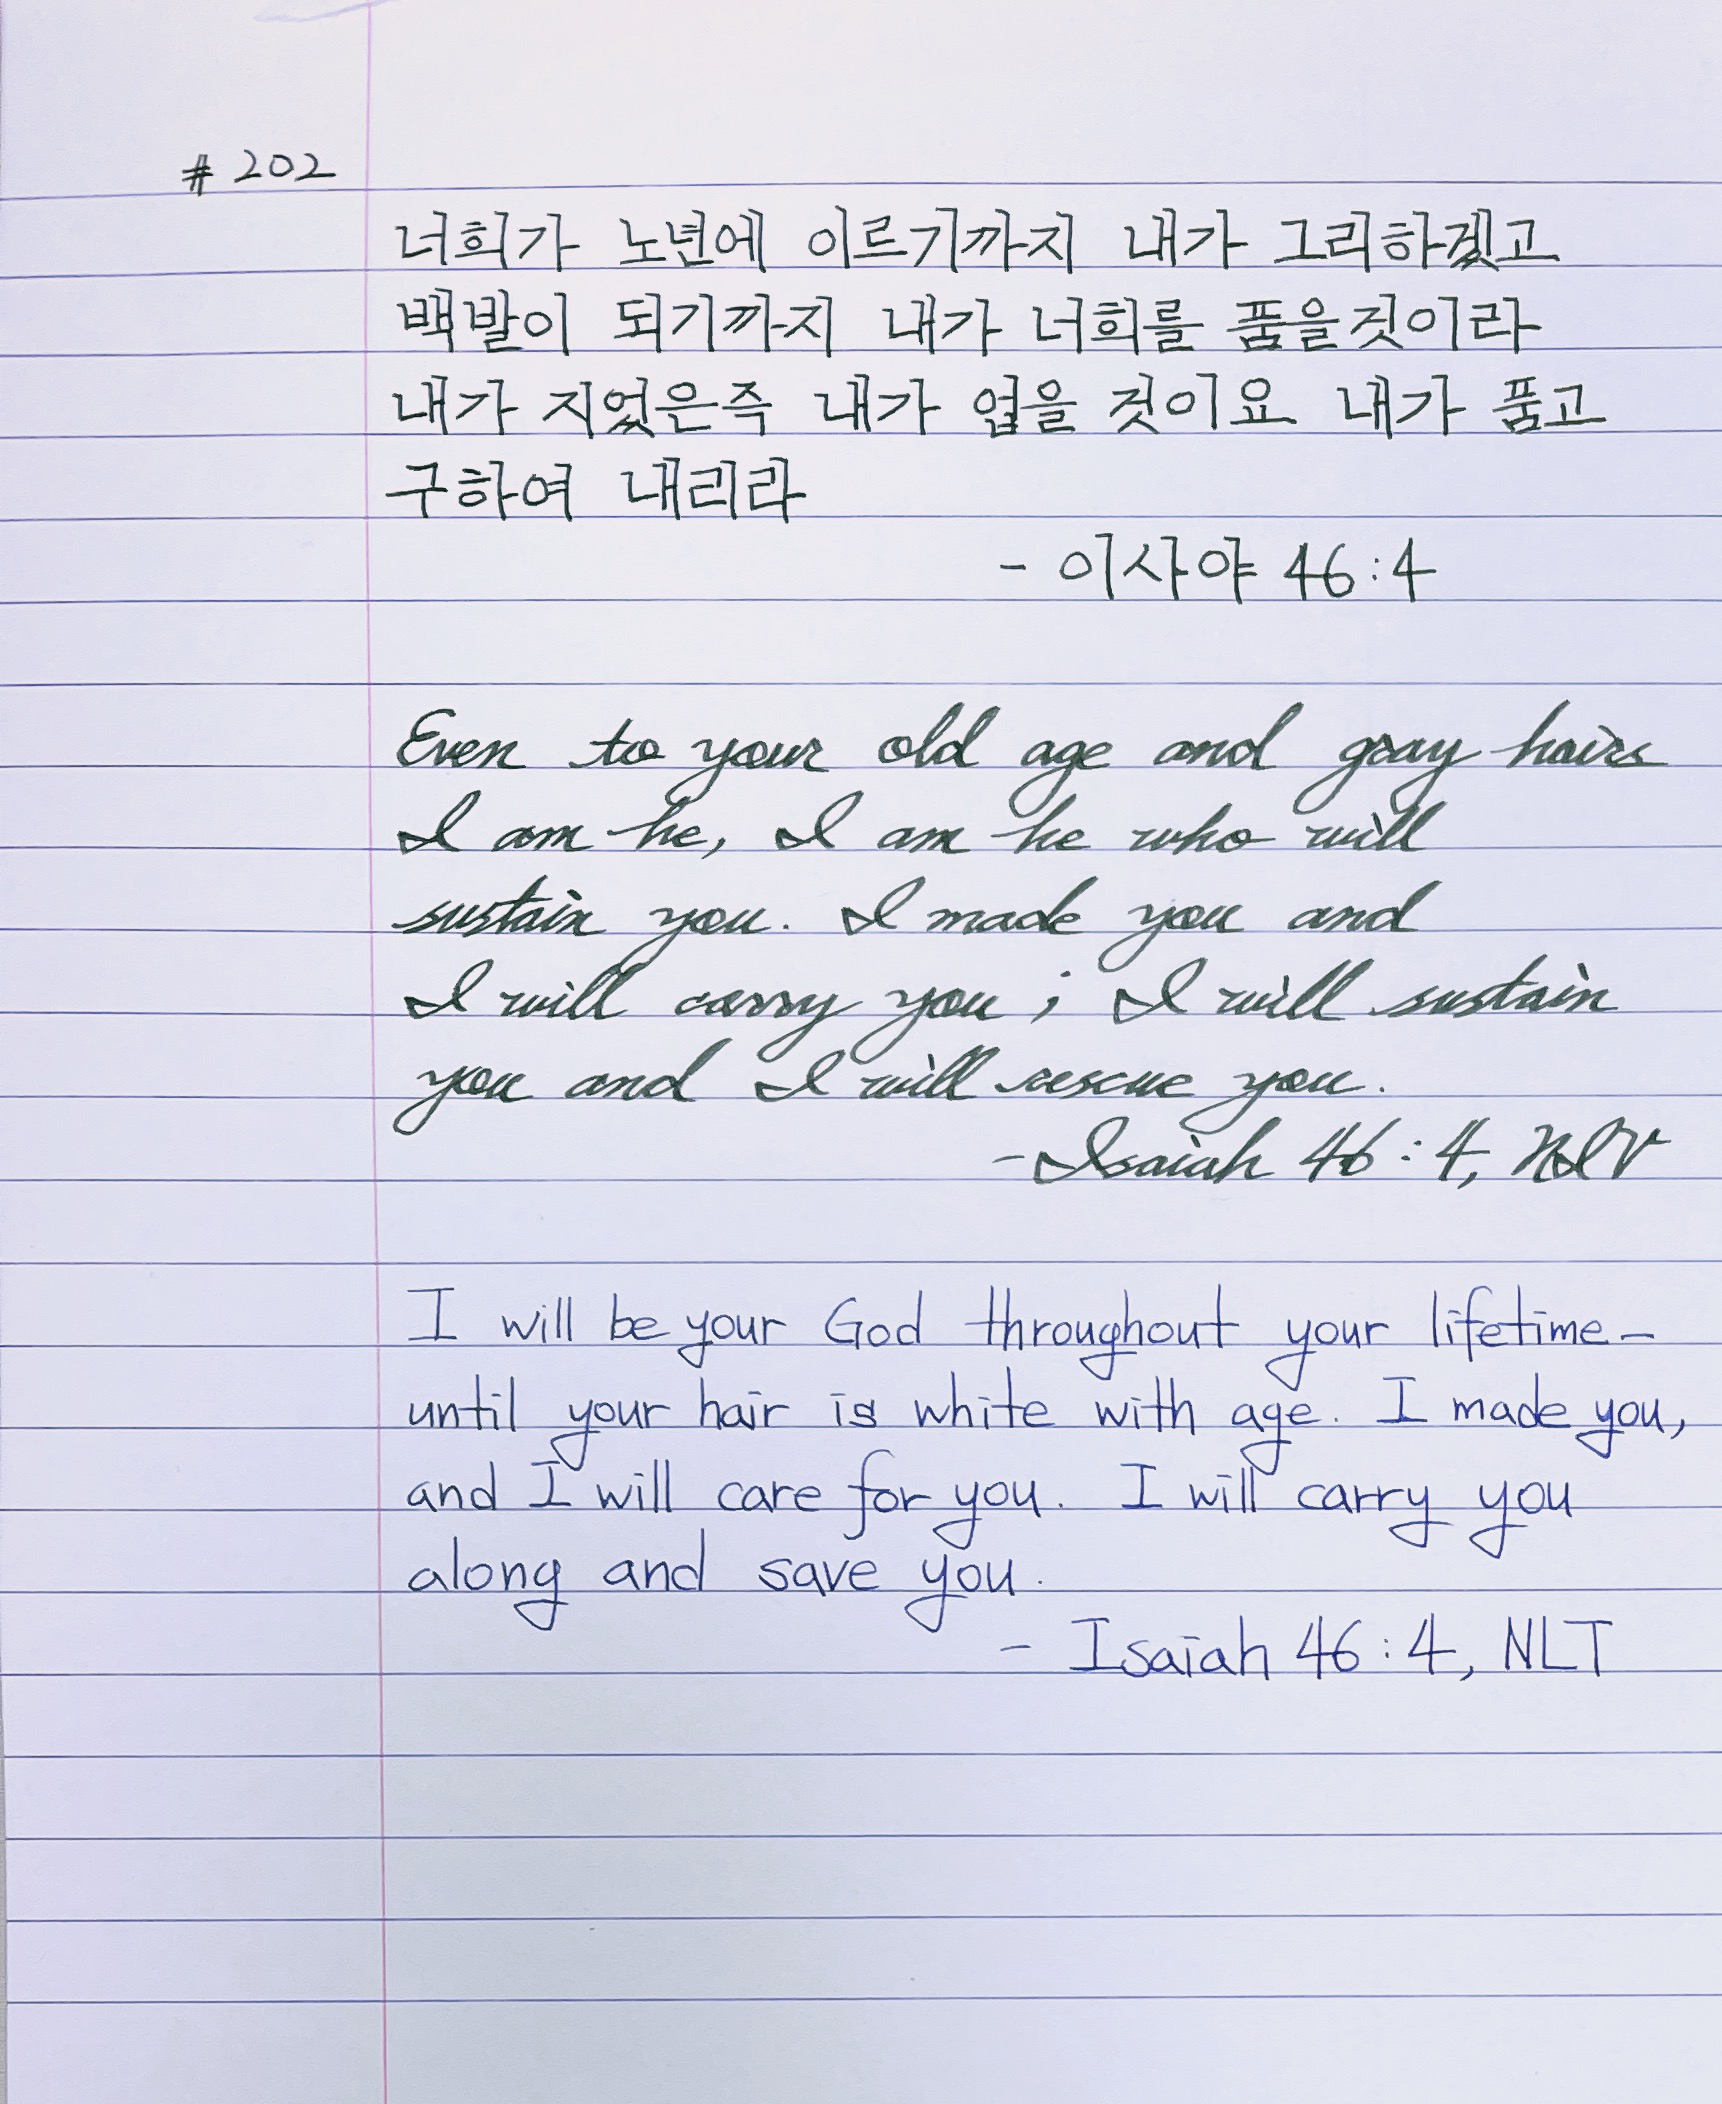 # 202
너희가 노년에 이르기까지 내가 그리하겠고
백발이 되기까지 내가 너희를 품을것이라
내가 지었은즉 내가 업을 것이요 내가 품고
구하여 내리라
- 이사야 46:4
Even to your old age and gray hairs
I am he, I am he who will
sustain you. I made you and
I will carry you; I will sustain
you and I will rescue you.
- Isaiah 46:4, NIV
I will be your God throughout your lifetime-
until your hair is white with age. I made you,
and I will care for you. I will carry you
along and save you.
- Isaiah 46:4, NLT